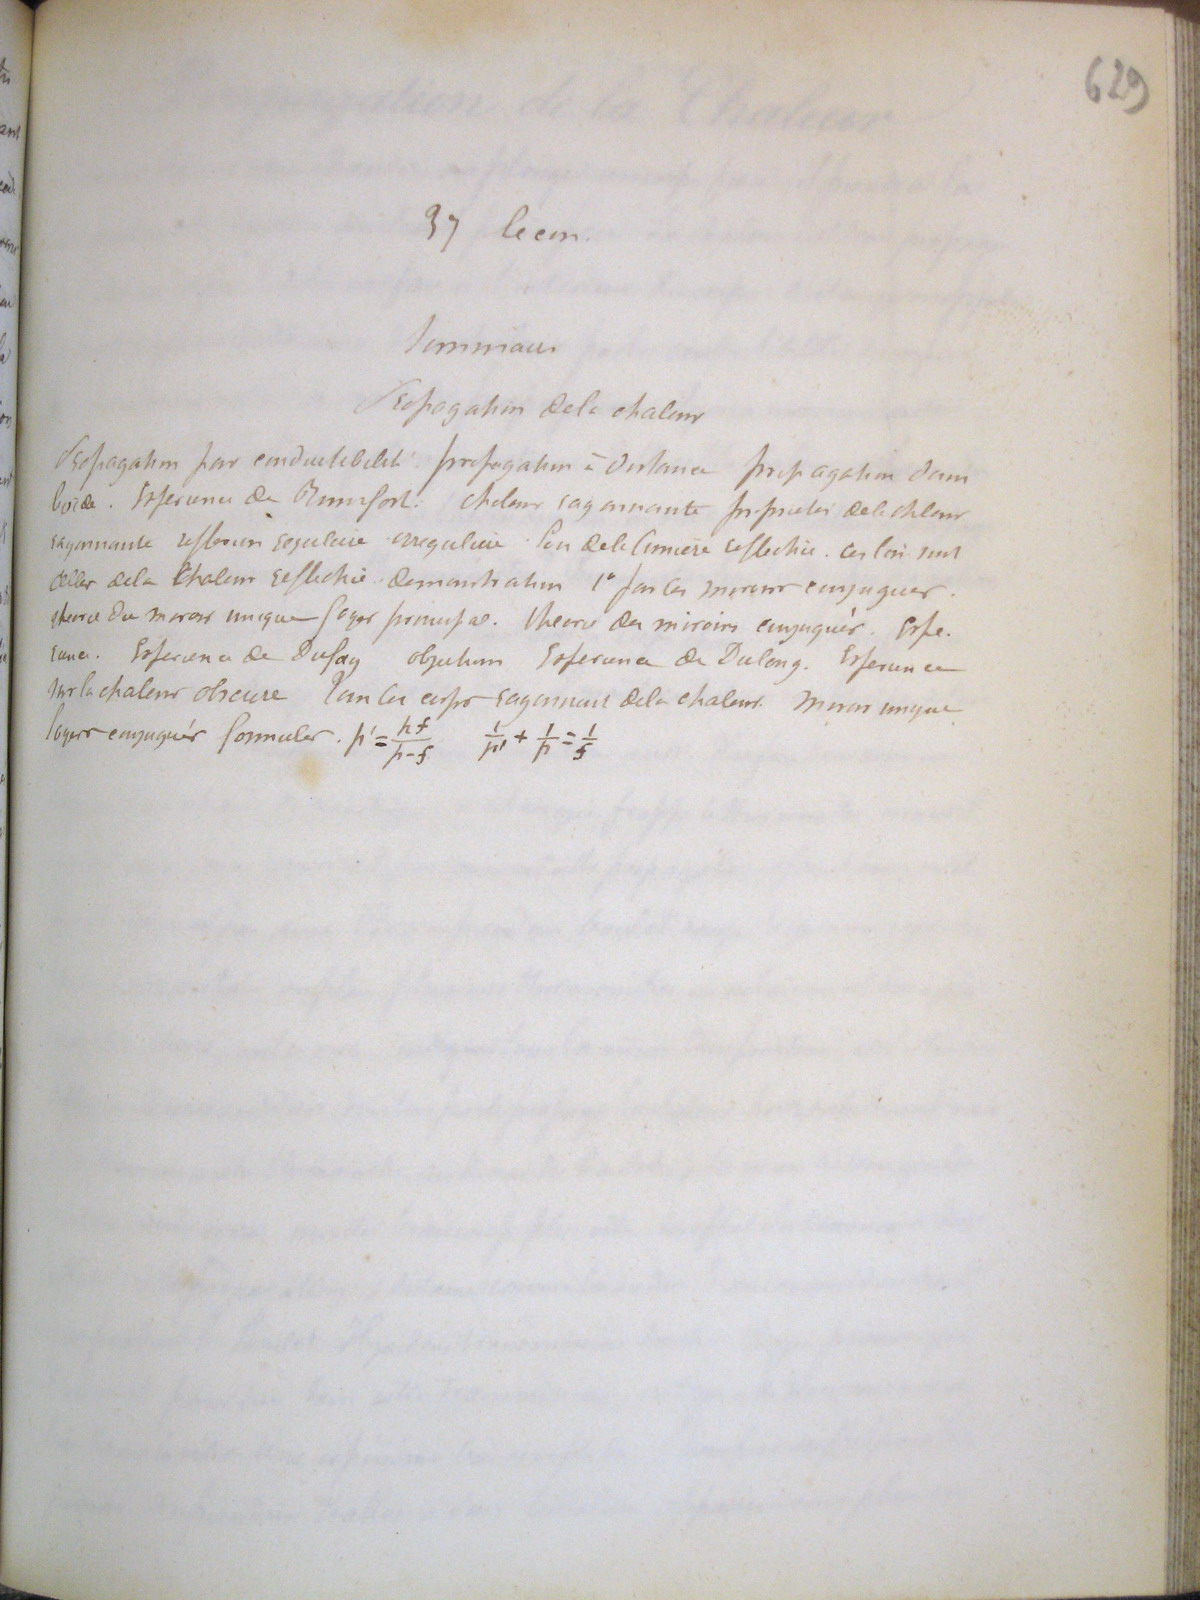 629
37 lecon.
Sommaire
Propagation de la chaleur
Propagation par conductibilité propagation à distance propagation dans
le vide. Experience de Rumfort. Chaleur rayonnante proprietes de la chaleur
rayonnante reflexion reguliere irreguliere Lois de la lumière reflechie. ces lois sont
celles de la chaleur reflechie demonstration 1° par les miroirs conjugues.
theorie du miroir unique foyer principal. theorie des miroirs conjugués. Expe.
rience. Experience de Dufay objection Experience de Dulong. Experience
sur la chaleur obscure Tous les corps rayonnent de la chaleur. Miroir unique
foyers conjugués formules. p' = pf/p-f 1/p' + 1/p = 1/f